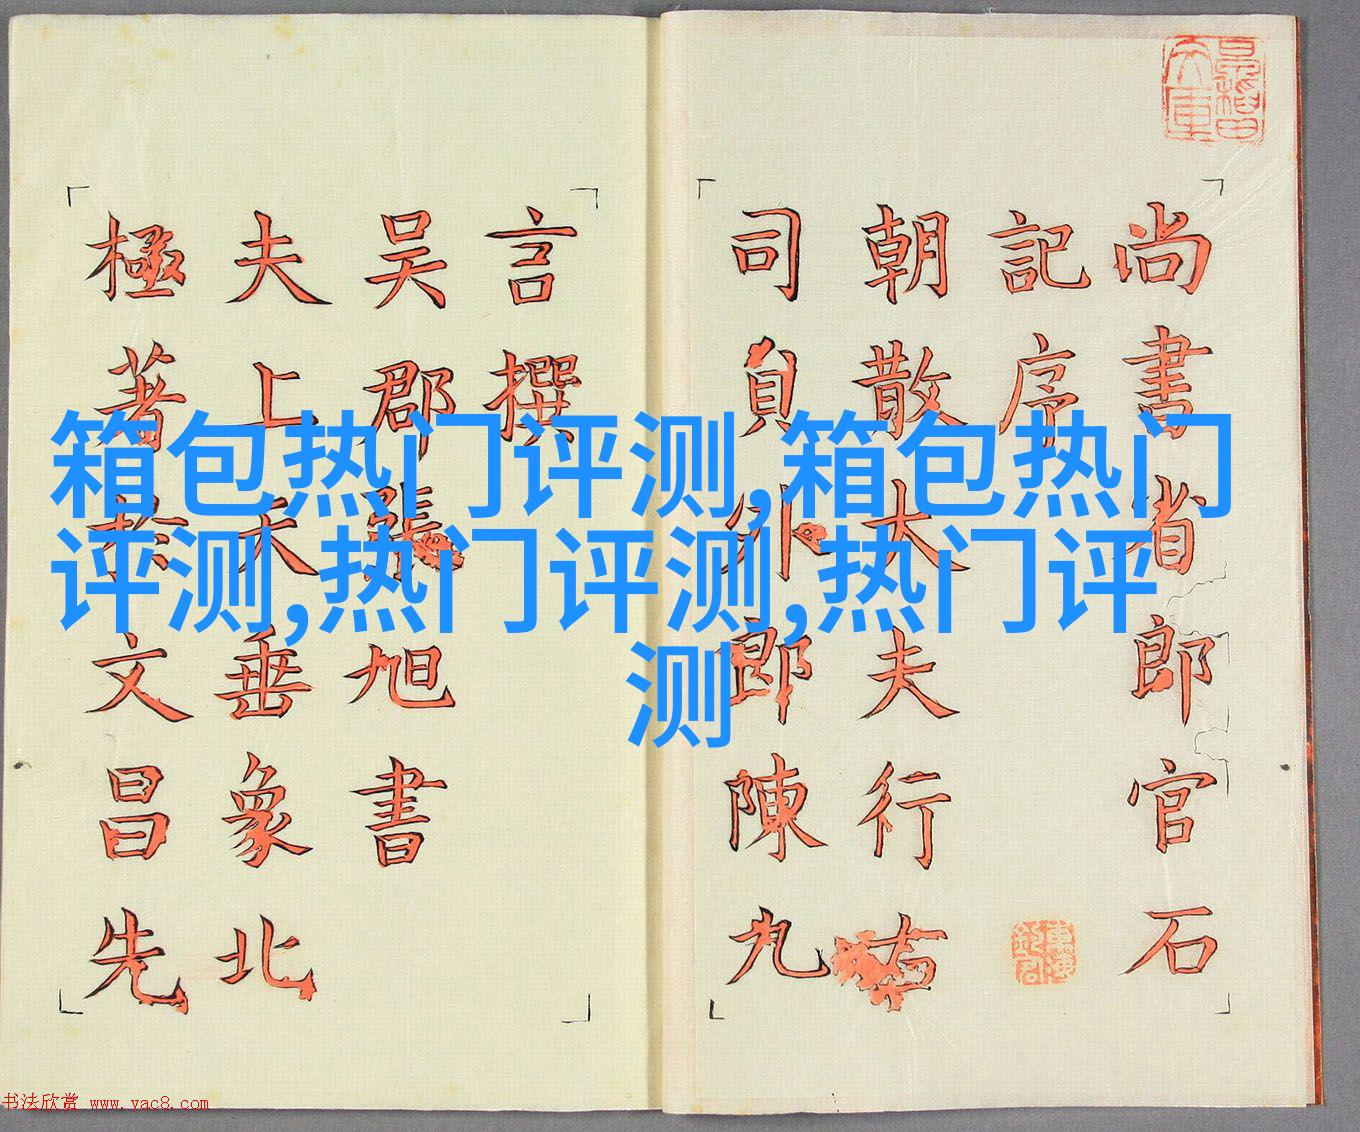 尚書省郎官石
記序
朝散大夫行右
司員外郎陳九
言撰
吳郡張旭書
夫上天垂象北
極著於文昌先
箱包热门评测,箱包热门
评测,热门评测,热门评
测
书法欣赏 www.yac8.com